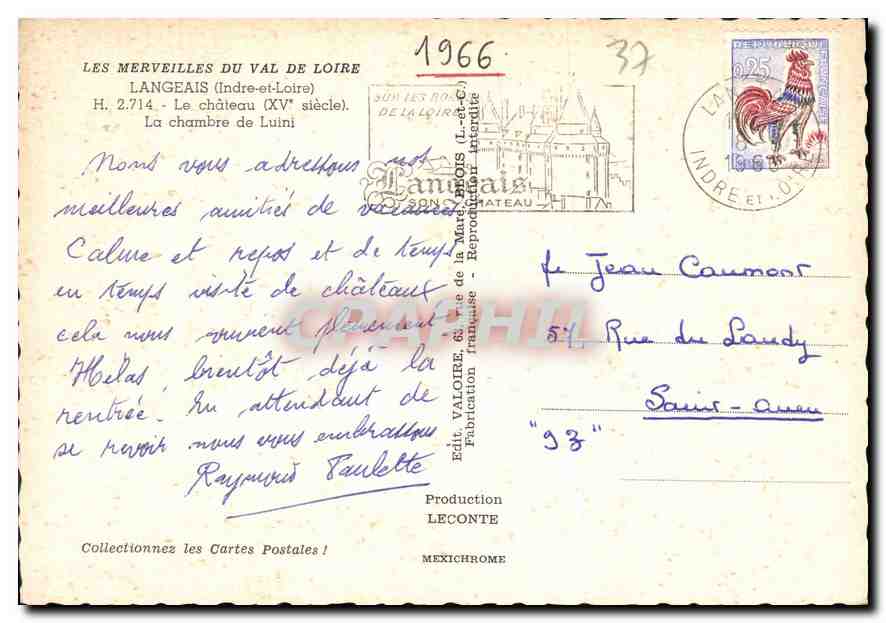 1966.
37
LES MERVEILLES DU VAL DE LOIRE
LANGEAIS (Indre-et-Loire)
H. 2.714 - Le château (XVe siècle).
La chambre de Luini
SUR LES BORDS
DE LA LOIRE
Langeais
SON CHATEAU
0,25
INDRE ET LOIRE
Nous vous adressons nos
meilleures amitiés de vacances
Calme et repos et de temps
en temps visite de châteaux
cela nous convient pleinement
Hélas, bientôt déjà la
rentrée. En attendant de
se revoir nous vous embrassons
Raymond Paulette
Edit. VALOIRE, 63, rue de la Mare, BLOIS (L.-et-C.)
Fabrication française - Reproduction interdite
Jean Caumont
57 Rue du Landy
Saint-Ouen
"93"
CPAPHIL
Production
LECONTE
MEXICHROME
Collectionnez les Cartes Postales !